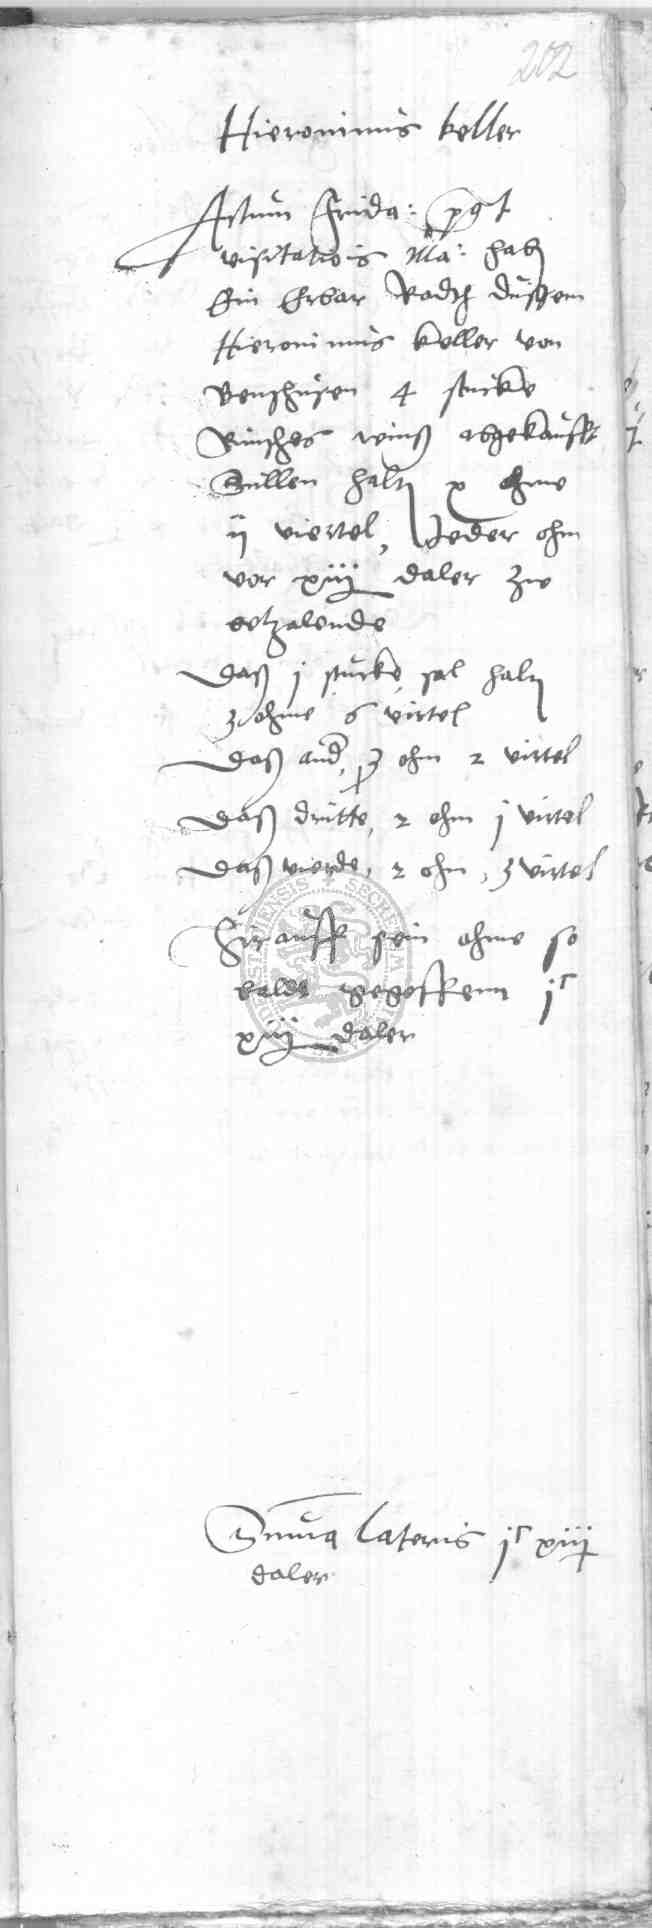 202
Hieronimus keller
Actum Frida: post
visitationis Ma: hab
Ein Erbar Radt dussem
Hieronimus keller von
4 stucke
Rinsches wins abgekaufft
Sullen halt x ohme
ij viertel, Jeder ohm
vor xiij daler zu
betzalende
Daß j stucke sal halt
3 ohme 6 virtel
Daß and, 3 ohm 2 virtel
Daß drutte, 2 ohm j virtel
Daß vierde, 2 ohm, 3 virtel
Hirauff sein ohme so
balde jc
xiij daler
Summa lateris jc xiij
daler